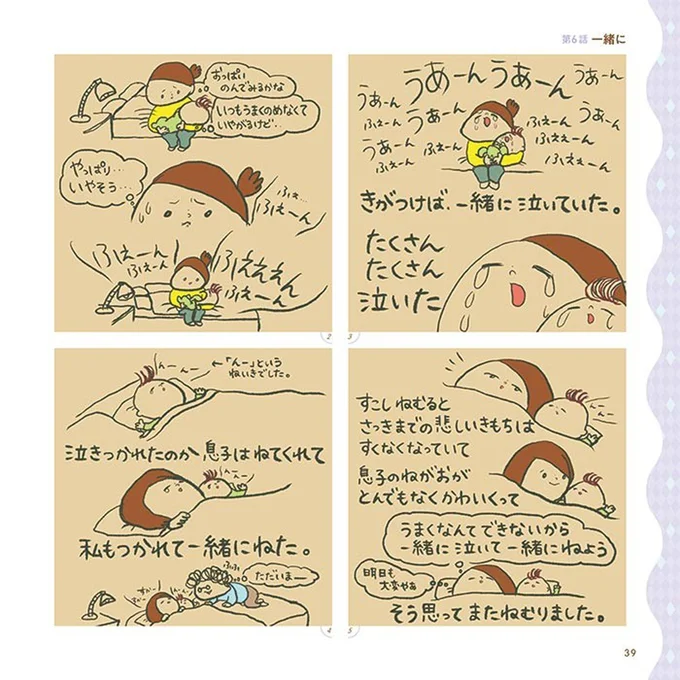 第6話 一緒に
おっぱい
のんでみるかな
いつもうまくのめなくて
いやがるけど…
やっぱり…
いやそう…
ふぇ…
ふぇーん
ふぇーん
ふぇーん
ふぇぇぇん
ふぇーん
2
うあーん うあーん
うぁーん
うぁーん
ふぇーん
うぁーん
うぁーん
ふぇーん
うぁーん
ふぇーん
ふぇーん
ふぇぇーん
ふぇーん
きがつけば、一緒に泣いていた。
たくさん
たくさん
泣いた
3
んーんー
←「んー」という
ねいきでした。
泣きつかれたのか息子はねてくれて
んーんー
私もつかれて一緒にねた。
ふふ
ただいまー
すかー
すかー
4
すこしねむると
さっきまでの悲しいきもちは
すくなくなっていて
息子のねがおが
とんでもなくかわいくって
うまくなんてできないから
一緒に泣いて一緒にねよう
明日も
大変やぁ
そう思ってまたねむりました。
5
39